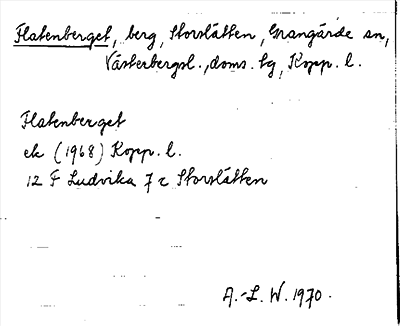 Flatenberget, berg, Storslätten, Grangärde sn,
Västerbergsl., doms. tg, Kopp. l.
Flatenberget
ek (1968) Kopp. l.
12 F Ludvika 7 c Storslätten
A.-L. W. 1970.